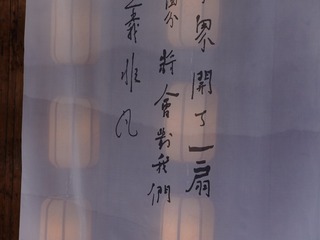 界開了一扇
將會對我們
義非凡